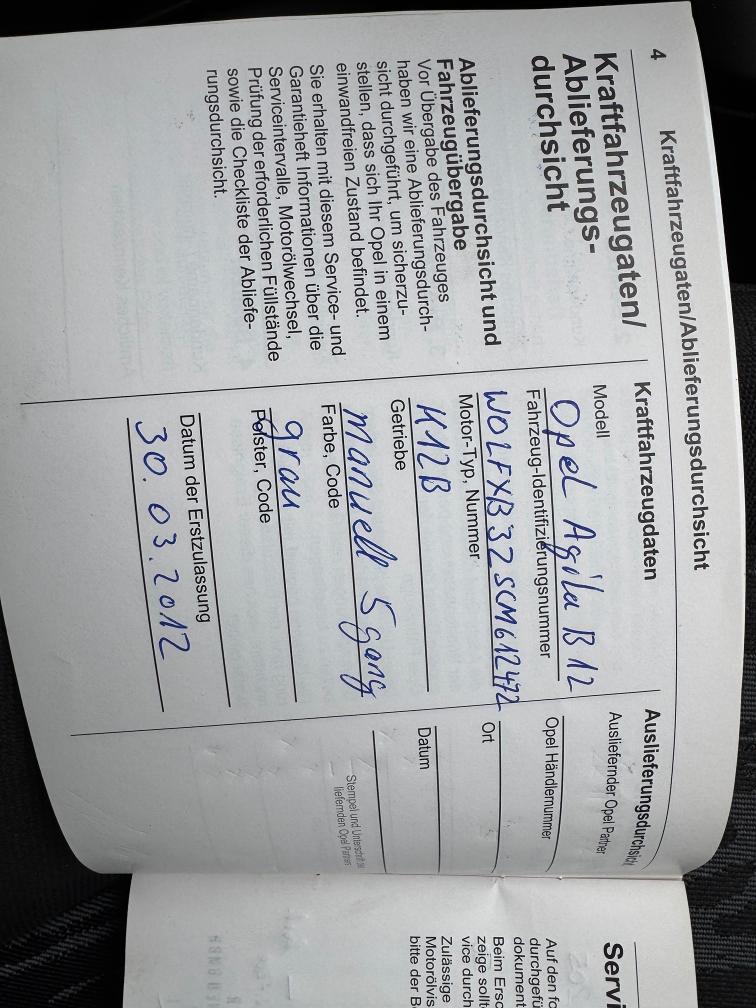 4
Kraftfahrzeugaten/Ablieferungsdurchsicht
Kraftfahrzeugaten/
Ablieferungs-
durchsicht
Ablieferungsdurchsicht und
Fahrzeugübergabe
Vor Übergabe des Fahrzeuges
haben wir eine Ablieferungsdurch-
sicht durchgeführt, um sicherzu-
stellen, dass sich Ihr Opel in einem
einwandfreien Zustand befindet.
Sie erhalten mit diesem Service- und
Garantieheft Informationen über die
Serviceintervalle, Motorölwechsel,
Prüfung der erforderlichen Füllstände
sowie die Checkliste der Abliefe-
rungsdurchsicht.
Kraftfahrzeugdaten
Modell
Opel Agila B 12
Fahrzeug-Identifizierungsnummer
WOLFXB32SCM612472
Motor-Typ, Nummer
K12B
Getriebe
Manuell 5gang
Farbe, Code
grau
Polster, Code
Datum der Erstzulassung
30.03.2012
Auslieferungsdurchsicht
Ausliefernder Opel Partner
Opel Händlernummer
Ort
Datum
Stempel und Unterschrift
liefernden Opel Partners
Servi
Auf den fo
durchgefü
dokument
Beim Ersc
zeige sollt
vice durch
Zulässige
Motorölvis
bitte der B